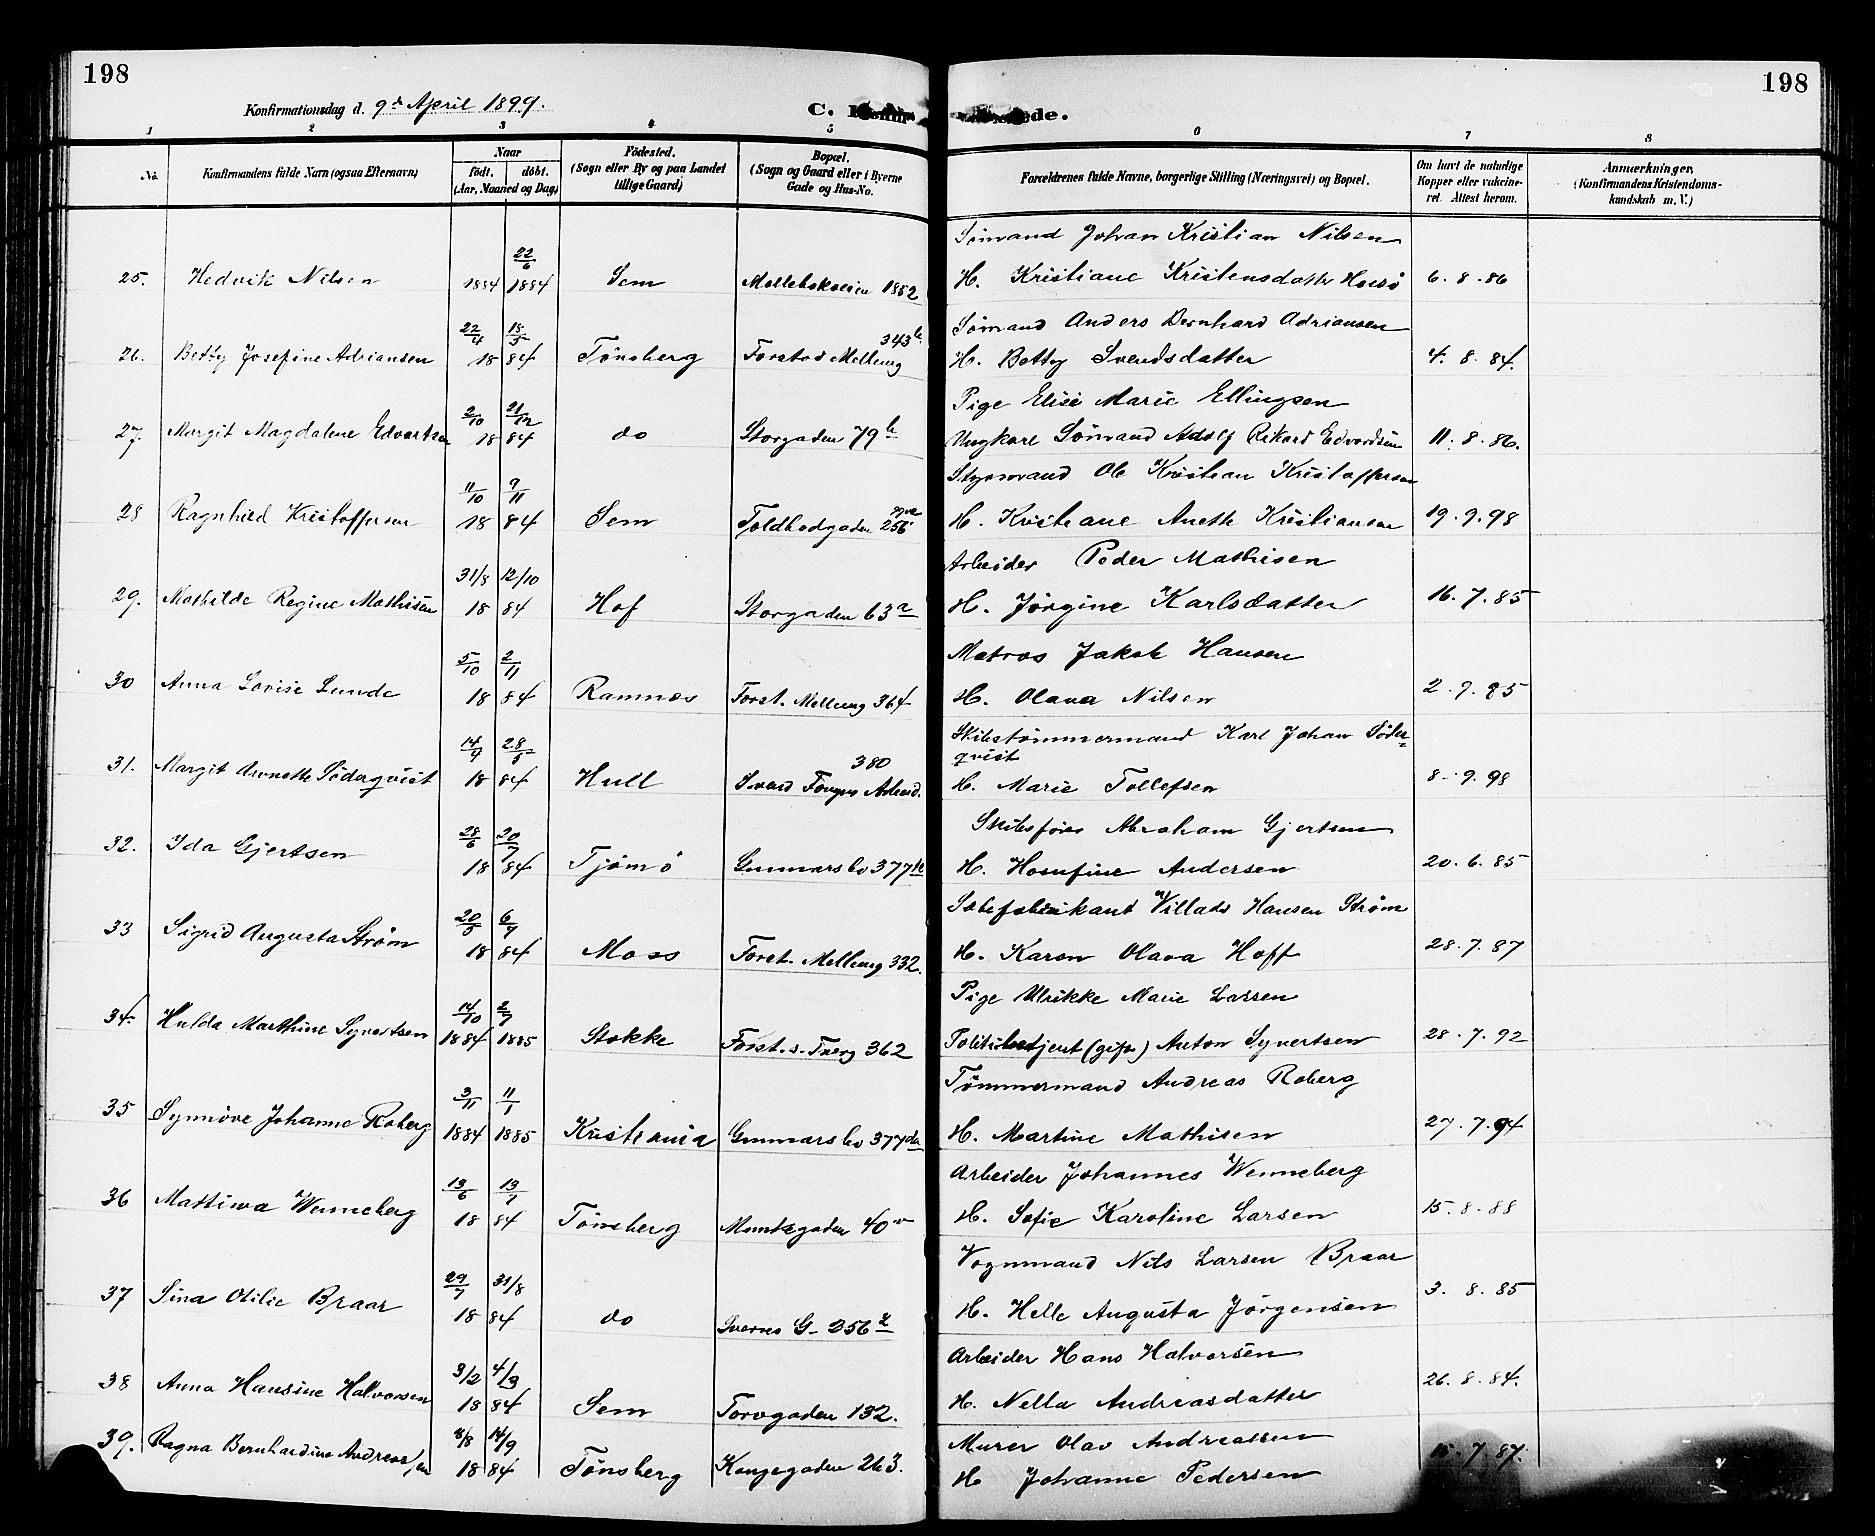 198
198
Konfirmationsdag d. 9de April 1899.
C. Konfir de.
1 2 3 4 5 6 7 8
No.
Konfirmandens fulde Navn (ogsaa Efternavn)
Naar
født. døbt.
(Aar, Maaned og Dag)
Födested.
(Sogn eller By og paa Landet
tillige Gaard)
Bopæl.
(Sogn og Gaard eller i Byerne
Gade og Hus-No.
Forældrenes fulde Navne, borgerlige Stilling (Næringsvei) og Bopæl.
Om havt de naturlige
Kopper eller vakcine-
ret. Attest herom.
Anmærkninger,
(Konfirmandens Kristendoms-
kundskab m. V.)
22/6 Sömand Johan Kristian Nilsen
25. Hedvik Nilsen 1884 1884 Sem Møllebakveien 1852 H. Kristiane Kristensdatter 6.8.86
22/4 18/5 343b Sömand Anders Bernhard Adriansen
26. Betty Josefine Adriansen 18 84 Tönsberg Forstad Mellemg H. Betty Svendsdatter 4.8.84.
2/10 21/12 Pige Elise Marie Ellingsen
27. Margit Magdalene Edvartsen 18 84 do Storgaden 79b Ungkarl Sömand Adolf Rikard Edvardsen 11.8.86.
11/10 9/11 Styrmand Ole Kristian Kristoffersen
28 Ragnhild Kristoffersen 18 84 Sem Toldbodgaden 256 H. Kristiane Anette Kristiansen 19.9.98
31/8 12/10 Arbeider Peder Mathisen
29. Mathilde Regine Mathisen 18 84 Hof Storgaden 63a H. Jörgine Karlsdatter 16.7.85
5/10 2/11 Matros Jakob Hansen
30 Anna Lovise Lunde 18 84 Ramnes Forst. Mellemg 364 H. Olava Nilsen 2.9.85
28/5 380 Skibstömmermand Karl Johan Söder=
qvist
31. Margit Annette Söderqvist 18 84 Hull Svend Foyns H. Marie Tollefsen 8.9.98
28/6 20/7 Skibsförer Abraham Gjertsen
32. Ida Gjertsen 18 84 Tjømø Gunnarsbo 377 H. Hosefine Andersen 20.6.85
20/5 6/7 Sæbefabrikant Villads Hansen Strøm
33 Sigrid Augusta Strøm 18 84 Moss Forst. Mellemg 332. H. Karen Olava Hoff 28.7.87
14/10 2/7 Pige Ulrikke Marie Larsen
34. Hulda Marthine Syvertsen 1884 1885 Stokke Forst. s. Tverg 362 Politibetjent (gift) Anton Syvertsen 28.7.92
3/11 11/1 Tömmermand Andreas Roberg
35 Synnöve Johanne Roberg 1884 1885 Kristiania Gunnarsbo 377 H. Martine Mathisen 27.7.94
13/6 13/7 Arbeider Johannes Wenneberg
36 Mattiwa Wenneberg 18 84 Tönsberg Munkegaden 40 H. Sofie Karoline Larsen 15.8.88
29/7 31/8 Vognmand Nils Larsen Braar
37 Sina Otilie Braar 18 84 do Sverres G. 256 H. Helle Augusta Jörgensen 3.8.85
3/2 4/3 Arbeider Hans Halvorsen
38 Anna Hansine Halvorsen 18 84 Sem Torvgaden 132. H. Nella Andreasdatter 26.8.84.
8/8 14/9 Murer Olav Andreassen
39. Ragna Bernhardine Andreassen 18 84 Tönsberg Kongegaden 263. H Johanne Pedersen 15.7.87.